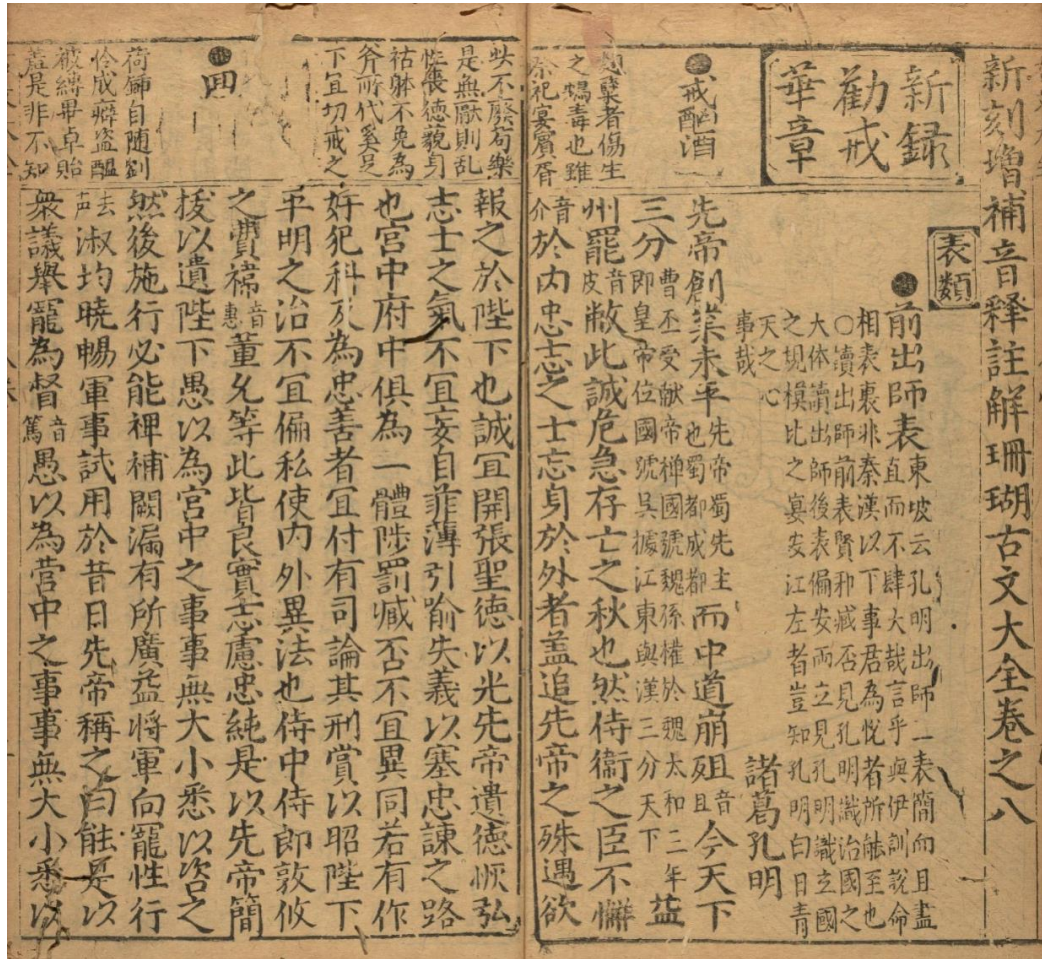 新刻增補音釋註解珊瑚古文大全卷之八
新録
勸戒
華章
戒酗酒
麯糵者傷生
之鴆毒也雖
祭祀宴賓胥
表類
前出師表
東坡云孔明出師二表簡而且盡
直而不肆大哉言乎與伊訓說命
相表裏非秦漢以下事君為悅者所能至也
○讀出師前表賢和臧否見孔明識治國之
大体讀出師後表偏安兩立見孔明識立國
之規模比之宴安江左者豈知孔明白日青
天之心
事哉
諸葛孔明
先帝創業未半先帝蜀先主也蜀都成都而中道崩殂音且今天下
三分曹丕受献帝禅國號魏孫權於魏太和二年即皇帝位國號吳據江東與漢三分天下益
州罷音皮敝此誠危急存亡之秋也然侍衛之臣不懈
音介於内忠志之士忘身於外者盖追先帝之殊遇欲
吠不廢苟樂
是無厭則乱
性喪德藐身
祜躰不免為
斧所代奚足
下宜切戒之
荷鍤自随劉
伶成癖盗醞
被縛畢卓貽
羞是非不知
報之於陛下也誠宜開張聖德以光先帝遺德恢弘
志士之氣不宜妄自菲薄引喻失義以塞忠諫之路
也宮中府中俱為一體陟罰臧否不宜異同若有作
奸犯科及為忠善者宜付有司論其刑賞以昭陛下
平明之治不宜偏私使内外異法也侍中侍郎敦攸
之費禕音惠董允等此皆良實志慮忠純是以先帝簡
拔以遺陛下愚以為宮中之事事無大小悉以咨之
然後施行必能裨補闕漏有所廣益將軍向寵性行
去声淑均曉暢軍事試用於昔日先帝稱之曰能是以
衆議舉寵為督音篤愚以為營中之事事無大小悉以